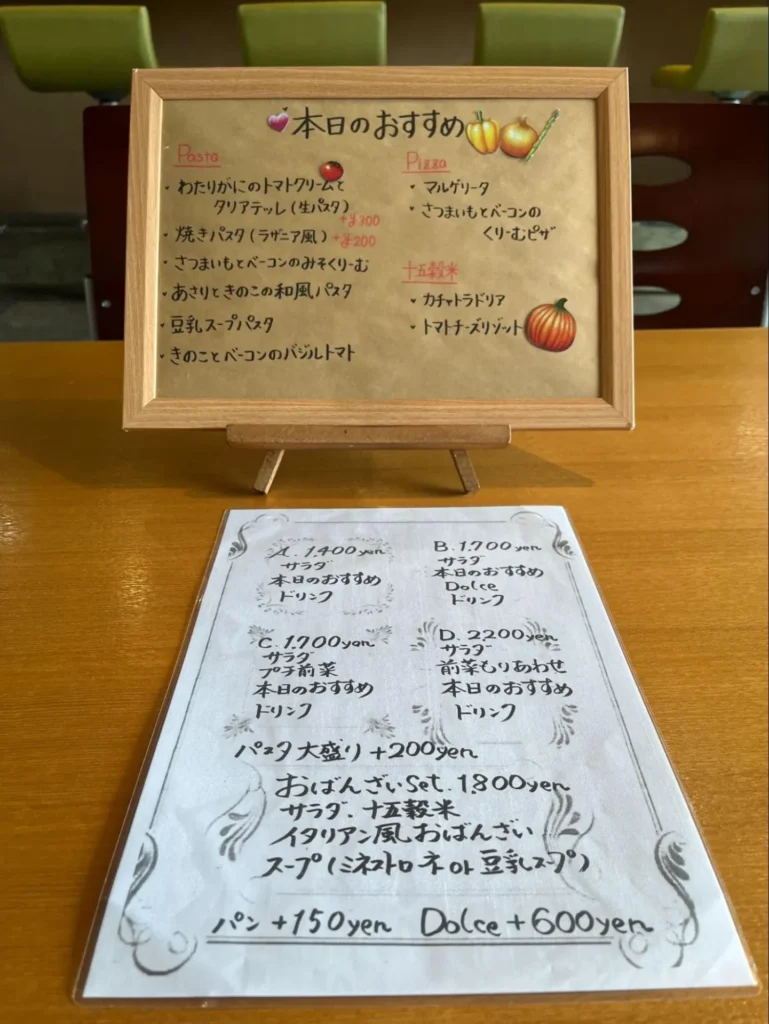 本日のおすすめ
Pasta
・わたりがにのトマトクリームと
タリアテッレ(生パスタ)
+¥300
・焼きパスタ(ラザニア風) +¥200
・さつまいもとベーコンのみそくりーむ
・あさりときのこの和風パスタ
・豆乳スープパスタ
・きのことベーコンのバジルトマト
Pizza
・マルゲリータ
・さつまいもとベーコンの
くりーむピザ
十五穀米
・カチャトラドリア
・トマトチーズリゾット
A. 1.400yen
サラダ
本日のおすすめ
ドリンク
B. 1.700yen
サラダ
本日のおすすめ
Dolce
ドリンク
C. 1.700yen
サラダ
プチ前菜
本日のおすすめ
ドリンク
D. 2.200yen
サラダ
前菜もりあわせ
本日のおすすめ
ドリンク
パスタ大盛り+200yen
おばんざいSet. 1.800yen
サラダ. 十五穀米
イタリアン風おばんざい
スープ(ミネストローネ or 豆乳スープ)
パン +150yen Dolce +600yen